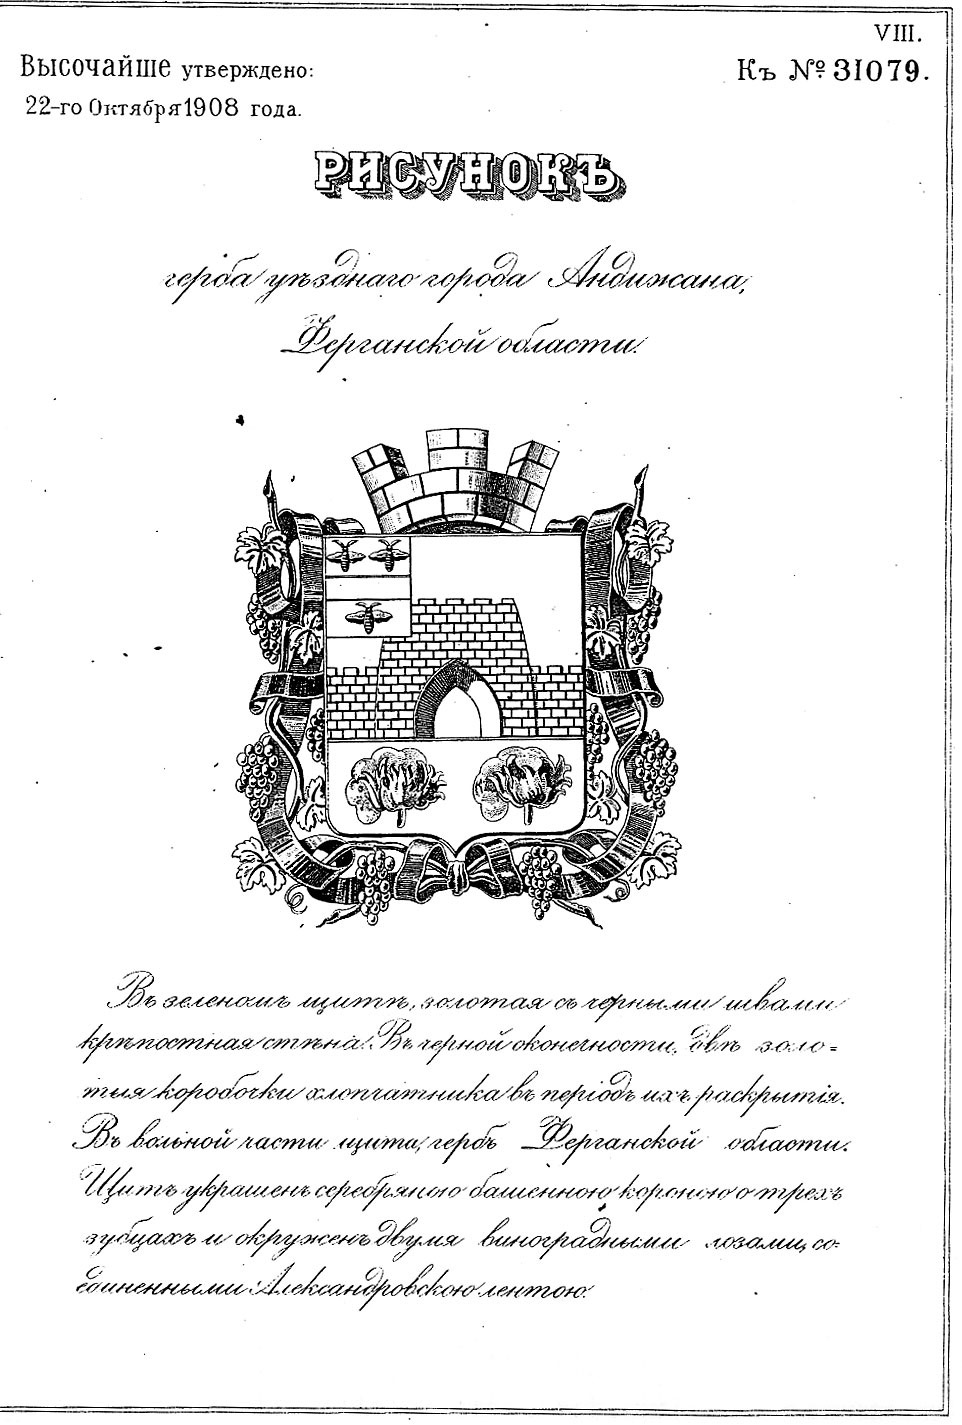 VIII.
Высочайше утверждено:
Къ № 31079.
22-го Октября 1908 года.
РИСУНОКЪ
герба уѣзднаго города Андижана,
Ферганской области.
Въ зеленомъ щитѣ, золотая съ черными швами
крѣпостная стѣна. Въ черной оконечности, двѣ золо=
тыя коробочки хлопчатника въ періодъ ихъ раскрытія.
Въ вольной части щита, гербъ Ферганской области.
Щитъ украшенъ серебряною башенною короною о трехъ
зубцахъ и окруженъ двумя виноградными лозами, со-
единенными Александровскою лентою.